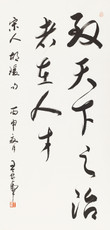 致天下之治
者在人才
宋人胡瑗句 丙申秋月